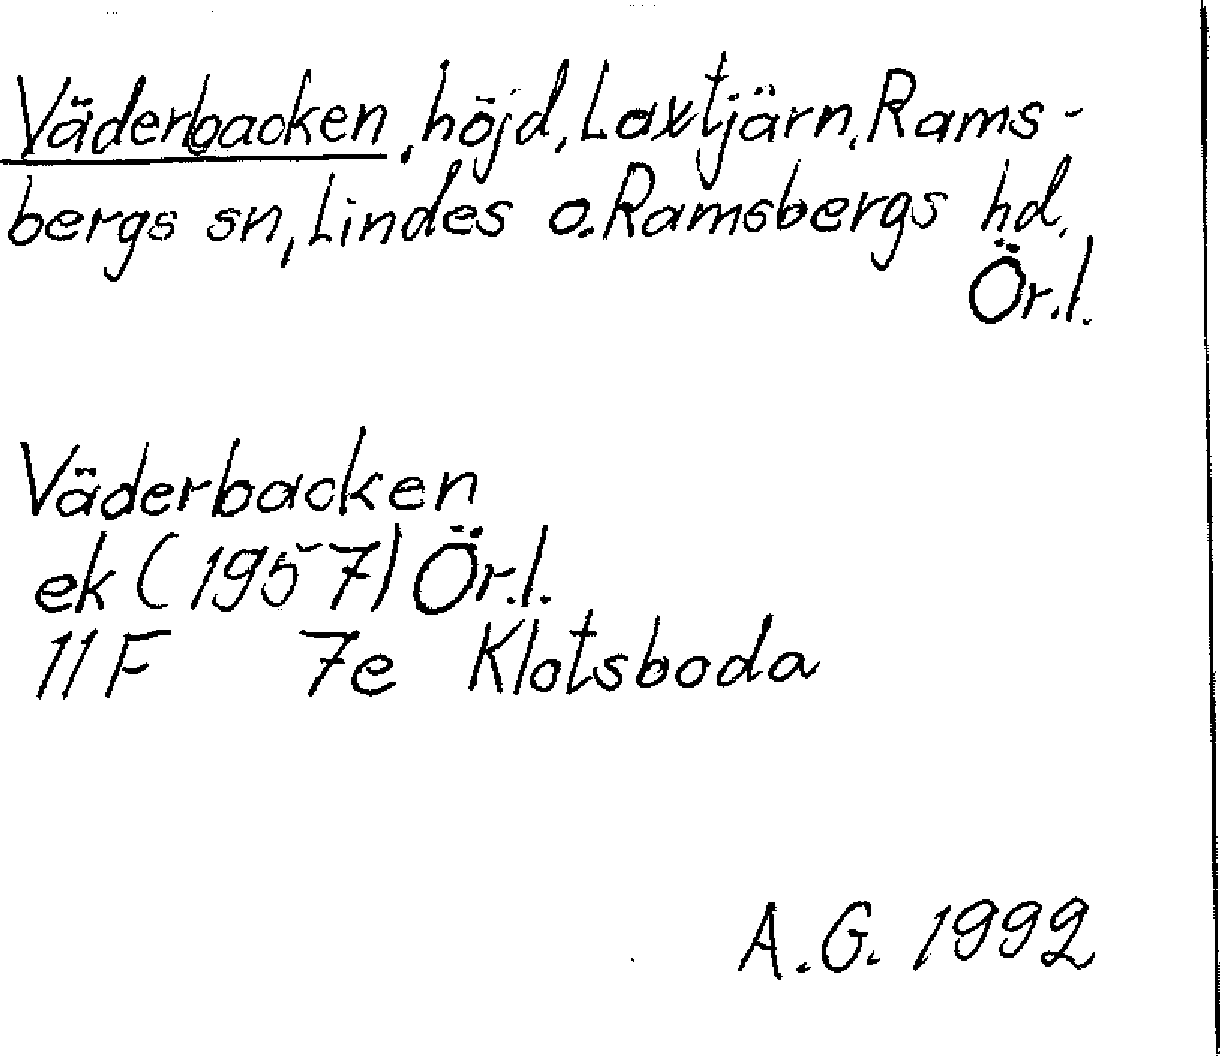 Väderbacken, höjd, Laxtjärn, Rams-
bergs sn, Lindes o. Ramsbergs hd.
Ör.l.
Väderbacken
ek (1957) Ör.l.
11F 7e Klotsboda
A.G. 1992